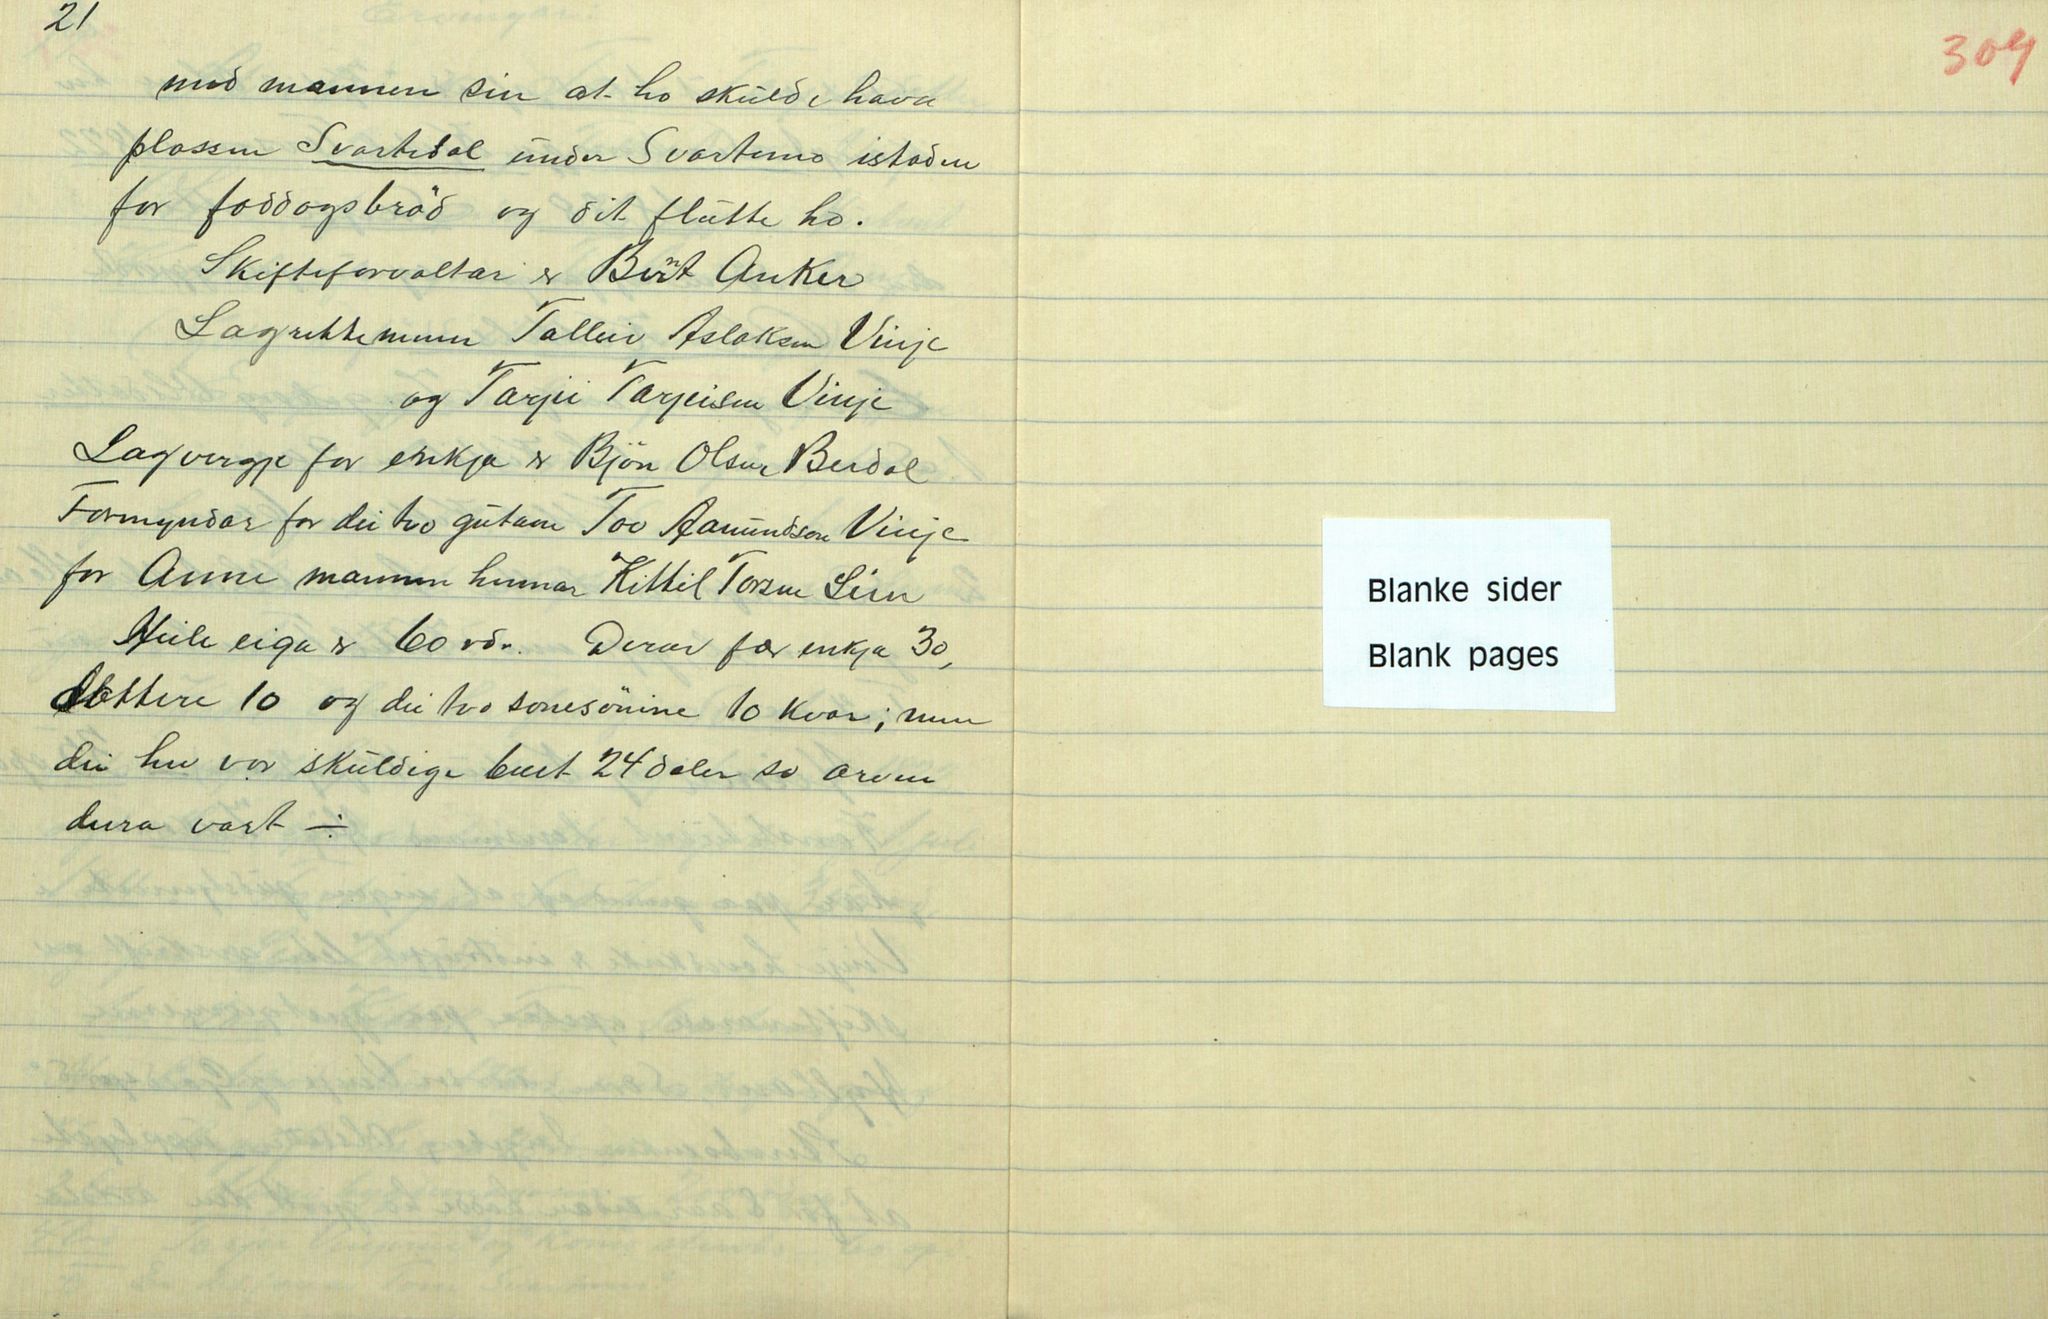 21
304
med mannen sin at ho skulde hava
plassen Svartedal under Svartemo istaden
for føddogsbröd og dit flutte ho.
Skifteforvaltar er Bernt Anker
Lagrettemenn Talleiv Aslaksen Vinje
og Tarjei Tarjeisen Vinje
Lagvergje for enkja er Björn Olsen Berdal
Formyndar for dei tvo gutane Tov Aamundson Vinje
for Anne mannen hennar Kittil Torsen Lien
Heile eiga er 60 rdr. Derav fær enkja 30,
dottere 10 og dei tvo sonesönine 10 kvar; men
dei her var skuldige burt 24 daler so arven
deira vart ÷
Blanke sider
Blank pages